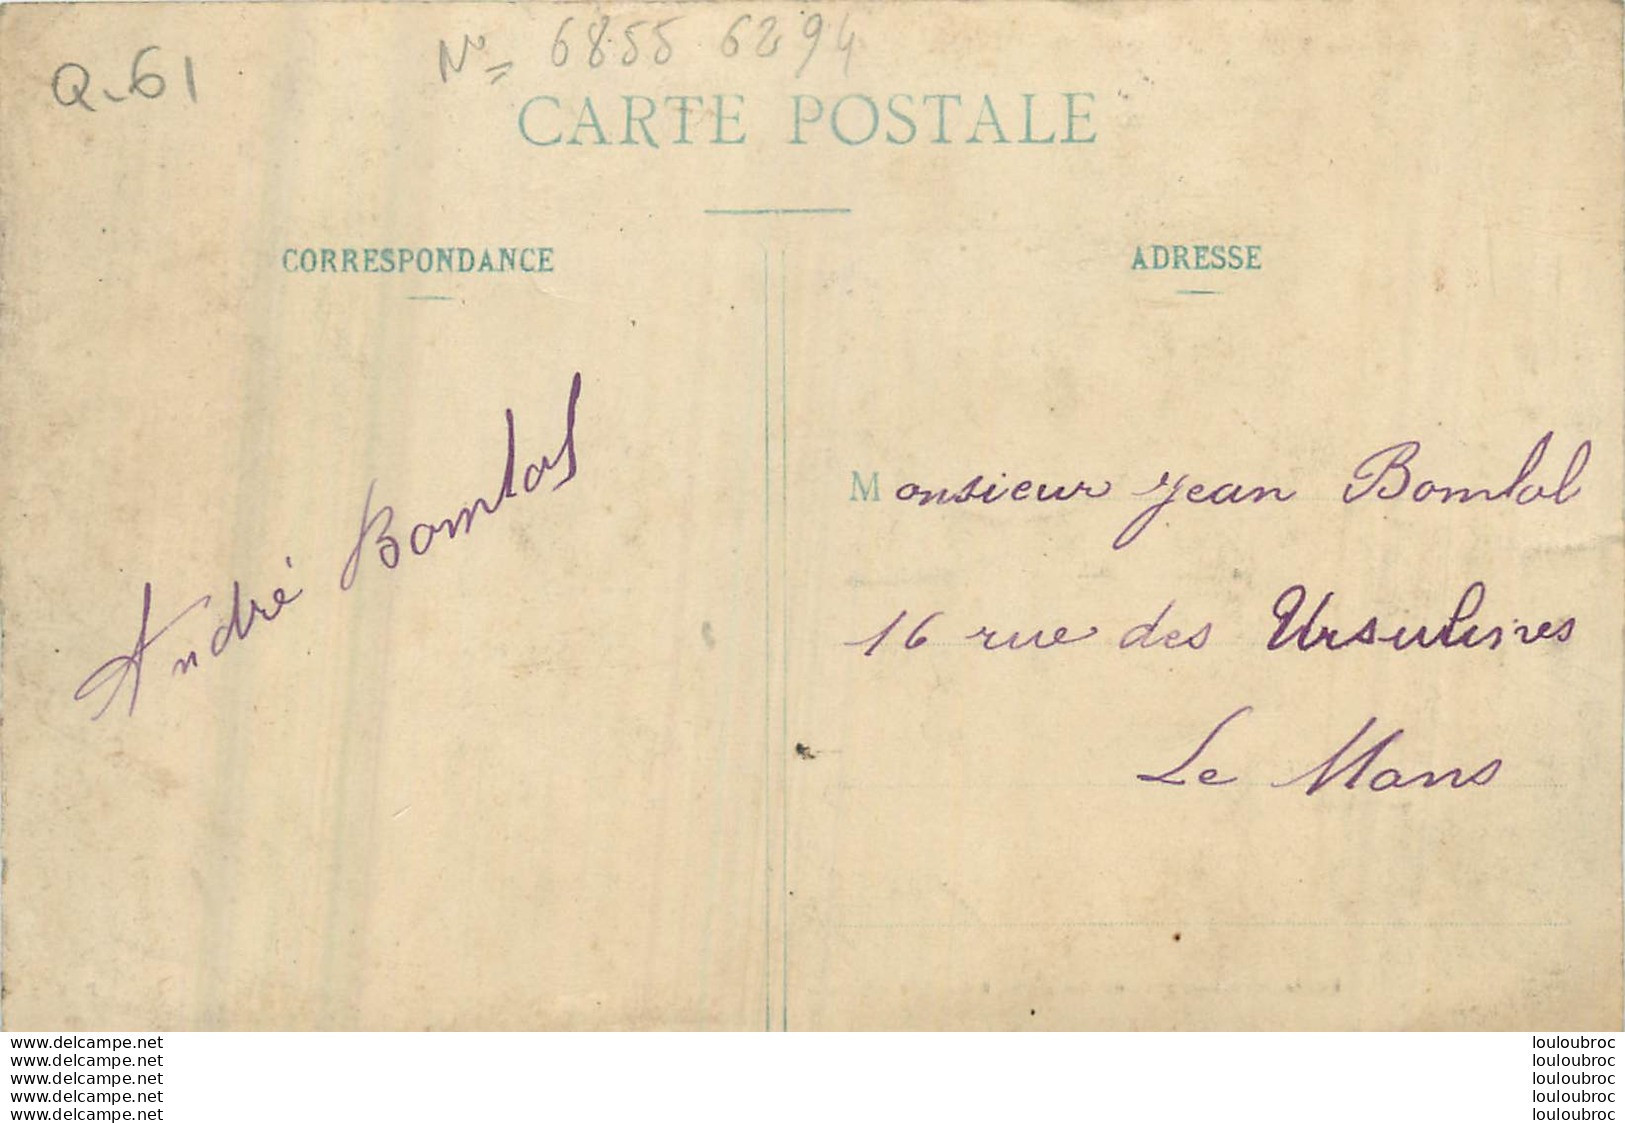 Q-61
No 6855 6294
CARTE POSTALE
CORRESPONDANCE
ADRESSE
André
Monsieur Jean
16 rue des Ursulines
Le Mans
www.delcampe.net
www.delcampe.net
www.delcampe.net
www.delcampe.net
www.delcampe.net
louloubroc
louloubroc
louloubroc
louloubroc
louloubroc